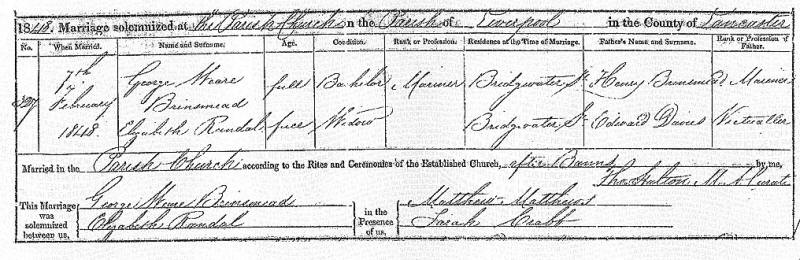 1848. Marriage solemnized at the Parish Church in the Parish of Liverpool in the County of Lancaster
No. When Married. Name and Surname. Age. Condition. Rank or Profession. Residence at the Time of Marriage. Father's Name and Surname. Rank or Profession of Father.
7th George Weare full Bachelor Mariner Bridgwater St Henry Brinsmead Mariner
February Brinsmead
1848. Elizabeth Randal. full Widow Bridgwater St Edward Davies Victualler
Married in the Parish Church according to the Rites and Ceremonies of the Established Church, after Banns by me,
Thos Hulton M.A. Curate
This Marriage was solemnized between us, George Weare Brinsmead in the Presence of us, Matthew Matthews
Elizabeth Randal Sarah Crabb